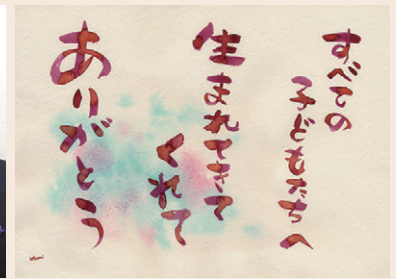 すべての
子どもたちへ
生まれてきて
くれて
ありがとう